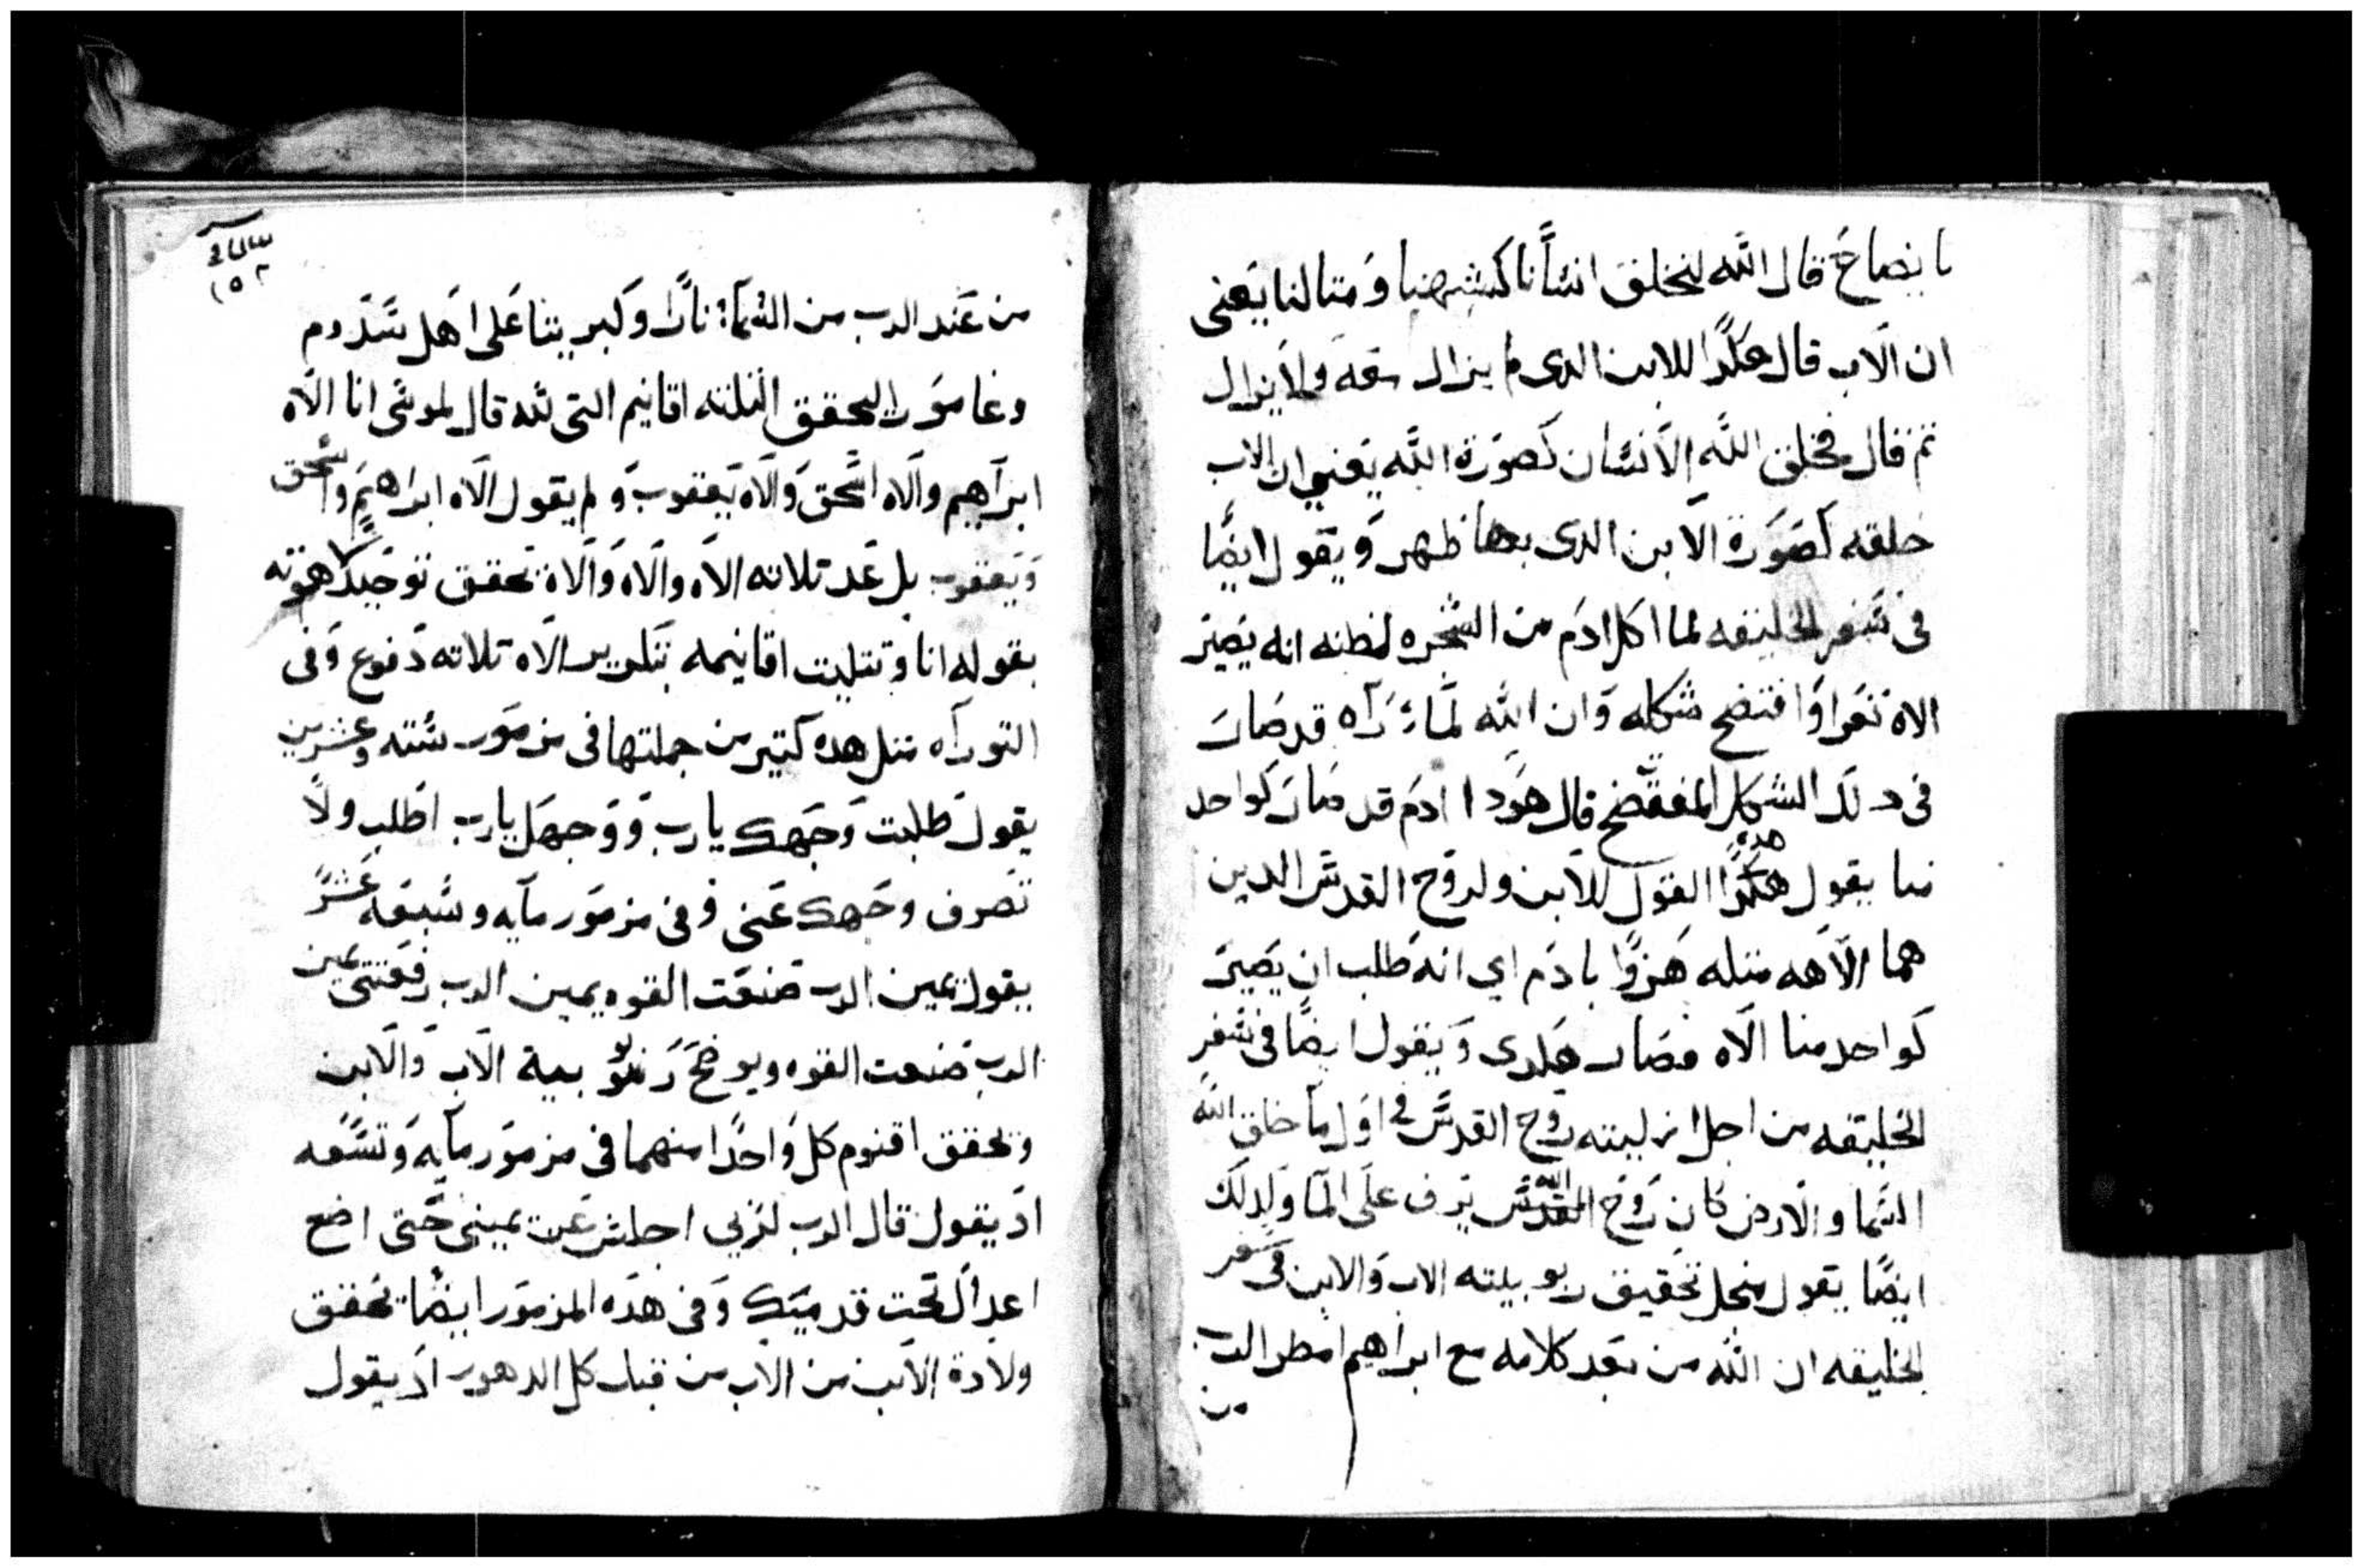 بايضاح قال الله لنخلق انسانا كشبهنا ومتالنا يعنى
ان الاب قال هكدا للابن الدى لم يزال معه ولا يزال
تم قال فخلق الله الانسان كصورة الله يعني ان الاب
خلقه كصورة الابن الدى بها ظهر ويقول ايضا
فى سفر الخليقه لما اكل ادم من الشجره لظنه انه يصير
الاه تعرا وافتضح شكله وان الله لما راه قد صار
فى دلك الشكل المفتضح قال هودا ادم قد صار كواحد
منا يقول هدا القول للابن ولروح القدس الدين
هما الاهه متله هزوا بادم اي انه طلب ان يصير
كواحد منا الاه فصار هكدى ويقول ايضا فى سفر
الخليقه من اجل ازليته روح القدس فى اول ما خلق الله
السما والارض كان روح الله يرف على الما ولدلك
ايضا يقول منجل تحقيق ربوبيته الاب والابن فى سفر
الخليقه ان الله من بعد كلامه مع ابراهيم امطر الرب
من
١٥٢
من عند الرب من السماء نارا وكبريتا على اهل سدوم
وغامور اليحقق التلته اقانيم التى لله قال لموسى انا الاه
ابراهيم والاه اسحق والاه يعقوب ولم يقول الاه ابراهيم واسحق
ويعقوب بل عد تلاته الاه والاه والاه تحقق توحيد لاهوته
بقوله انا وتتليت اقانيمه بتكرير الاه تلاته دفوع وفى
التوراه متل هده كتير من جملتها فى مزمور سته وعشرين
يقول طلبت وجهك يارب ووجهك يارب اطلب ولا
تصرف وجهك عنى وفى مزمور مايه وسبعه عشر
يقول يمين الرب صنعت القوه يمين الرب رفعتنى يمين
الرب صنعت القوه ويوضح ربوبية الاب والابن
وتحقق اقنوم كل واحدا منهما فى مزمور مايه وتسعه
اد يقول قال الرب لربي اجلس عن يمينى حتى اضع
اعداك تحت قدميك وفى هده المزمور ايضا تحقق
ولادة الابن من الاب من قبل كل الدهور اد يقول